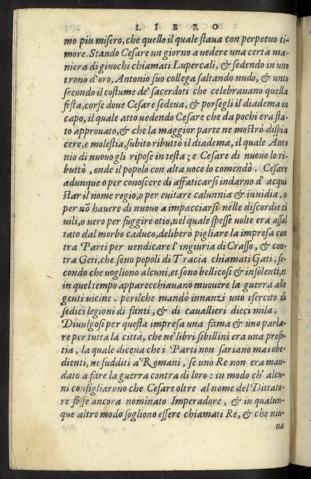 LIBRO
mo piu misero, che quello il quale staua con perpetuo ti-
more. Stando Cesare un giorno a uedere una certa ma
niera di giuochi chiamati Lupercali, & sedendo in uno
trono d'oro, Antonio suo collega saltando nudo, & unto
secondo il costume de' sacerdoti che celebrauano quella
festa, corse doue Cesare sedeua, & porsegli il diadema in
capo, il quale atto uedendo Cesare che da pochi era sta-
to approuato, & che la maggior parte ne mostrò dispia
cere, e molestia, subito ributtò il diadema, il quale Anto
nio di nuouo gli ripose in testa; e Cesare di nuouo lo ri-
buttò, onde il popolo con alta uoce lo comendò. Cesare
adunque o per conoscere di affaticarsi indarno d'acqui
star il nome regio, o per euitare calunnia & inuidia, o
per nō hauere di nuouo a impacciarsi nelle discordie ci
uili, o uero per fuggire otio, nel quale spesse uolte era assal
tato dal morbo caduco, deliberò pigliare la impresa con
tra Parti per uendicare l'ingiuria di Crasso, & con-
tra Geti, che sono popoli di Tracia chiamati Gati, se-
condo che uogliono alcuni, et sono bellicosi & insolenti, et
in quel tempo apparecchiauano muouere la guerra alle
genti uicine. perilche mandò innanzi uno esercito di
sedici legioni di fanti, & di cauallieri dieci mila.
Diuulgosi per questa impresa una fama & uno parla-
re per tutta la città, che ne' libri sibillini era una profe-
tia, la quale diceua che i Parti non sariano mai obe-
dienti, ne sudditi a' Romani, se uno Re non era man-
dato a fare la guerra contra di loro: in modo ch' alcu-
ni consigliarono che Cesare oltre al nome del Dittato-
re fosse ancora nominato Imperadore, & in qualun-
que altro modo sogliono essere chiamati Re, & che niu-
na